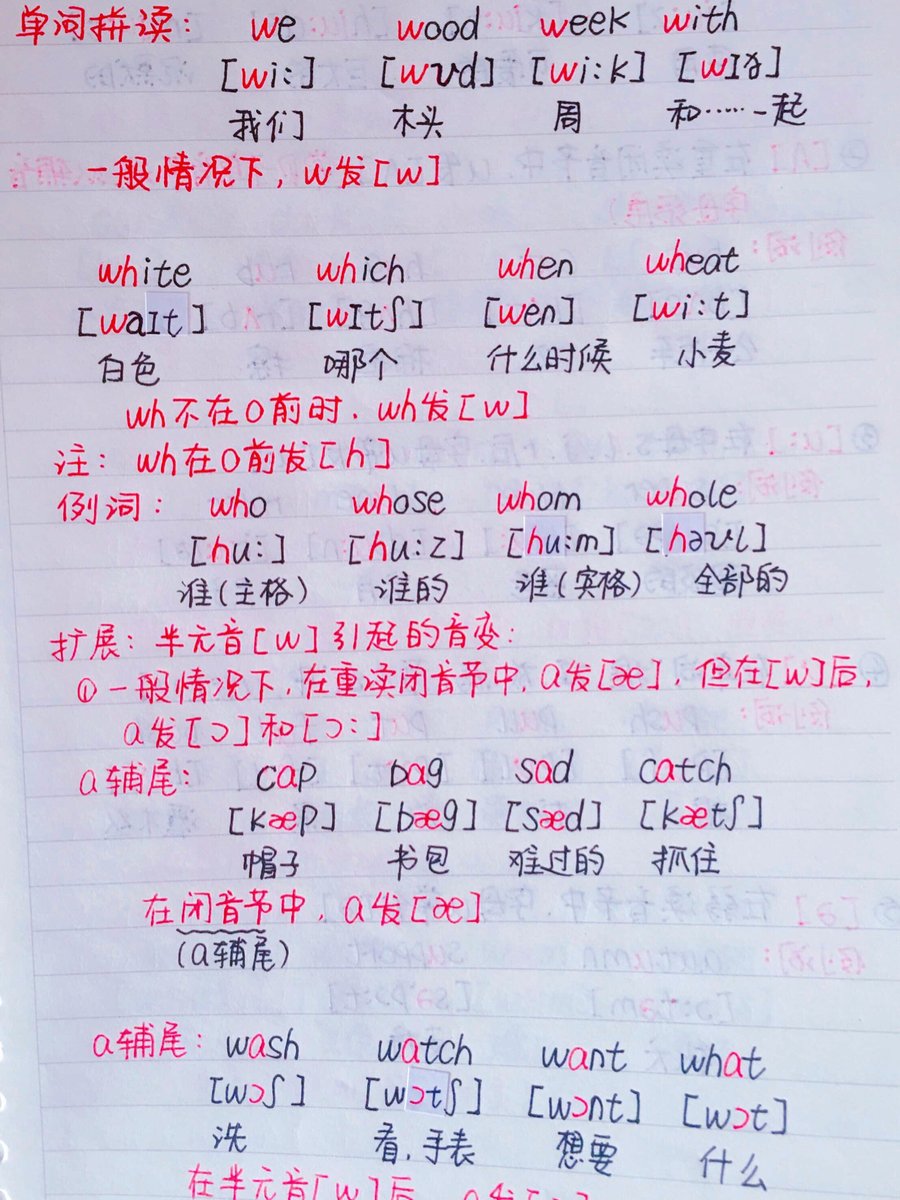 单词拼读: we wood week with
[wi:] [wʊd] [wi:k] [wɪð]
我们 木头 周 和……一起
一般情况下, w发[w]
white which when wheat
[waɪt] [wɪtʃ] [wen] [wi:t]
白色 哪个 什么时候 小麦
wh不在o前时, wh发[w]
注: wh在o前发[h]
例词: who whose whom whole
[hu:] [hu:z] [hu:m] [həʊl]
谁(主格) 谁的 谁(宾格) 全部的
扩展: 半元音[w]引起的音变:
①一般情况下, 在重读闭音节中, a发[æ], 但在[w]后,
a发[ɔ]和[ɔ:]
a辅尾: cap bag sad catch
[kæp] [bæg] [sæd] [kætʃ]
帽子 书包 难过的 抓住
在闭音节中, a发[æ]
(a辅尾)
a辅尾: wash watch want what
[wɔʃ] [wɔtʃ] [wɔnt] [wɔt]
洗 看, 手表 想要 什么
在半元音[w]后, a发